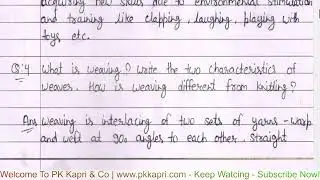 acquiring new skills due to environmental stimulation
and training like clapping, laughing, playing with
toys etc.
Q.4 What is weaving? Write the two characteristics of
weaver. How is weaving different from knitting?
Ans Weaving is interlacing of two sets of yarns - warp
and weft at 90° angles to each other. Straight
Welcome To PK Kapri & Co | www.pkkapri.com - Keep Watcing - Subscribe Now!